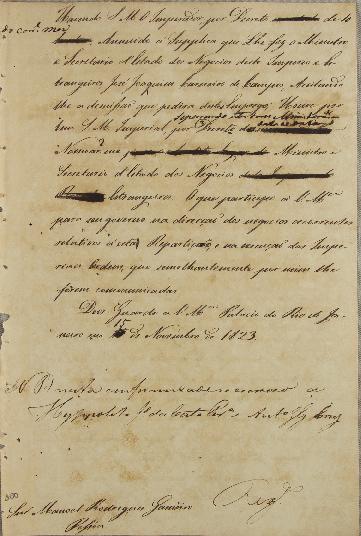 Havendo S. M. O Imperador por Decreto de 10
do corr.e mez
Annuido á Supplica que Lhe fez o Ministro
e Secretario d'Estado dos Negocios deste Imperio e Es-
trangeiros José Joaquim Carneiro de Campos, Acceitando
lhe a demissão que pedira destes Empregos; Houve por
bem S. M. Imperial por Decreto
Nomear me Ministro e
Secretario d'Estado dos Negocios
Estrangeiros. O que participo a V. M.ce
para seu governo na direcção dos negocios concernentes
relativos a esta Repartição e na execução das Impe-
riaes Ordens, que semelhantemente por mim lhe
forem communicadas.
Deos Guarde a V. M.ce Palacio do Rio de Ja-
neiro em 15 de Novembro de 1823.
N. P.
nesta conformidade se escreveo a
Hyppolito J.e da Costa Per.a e Anto.
Snr. Manoel Rodrigues Gameiro
Pessoa